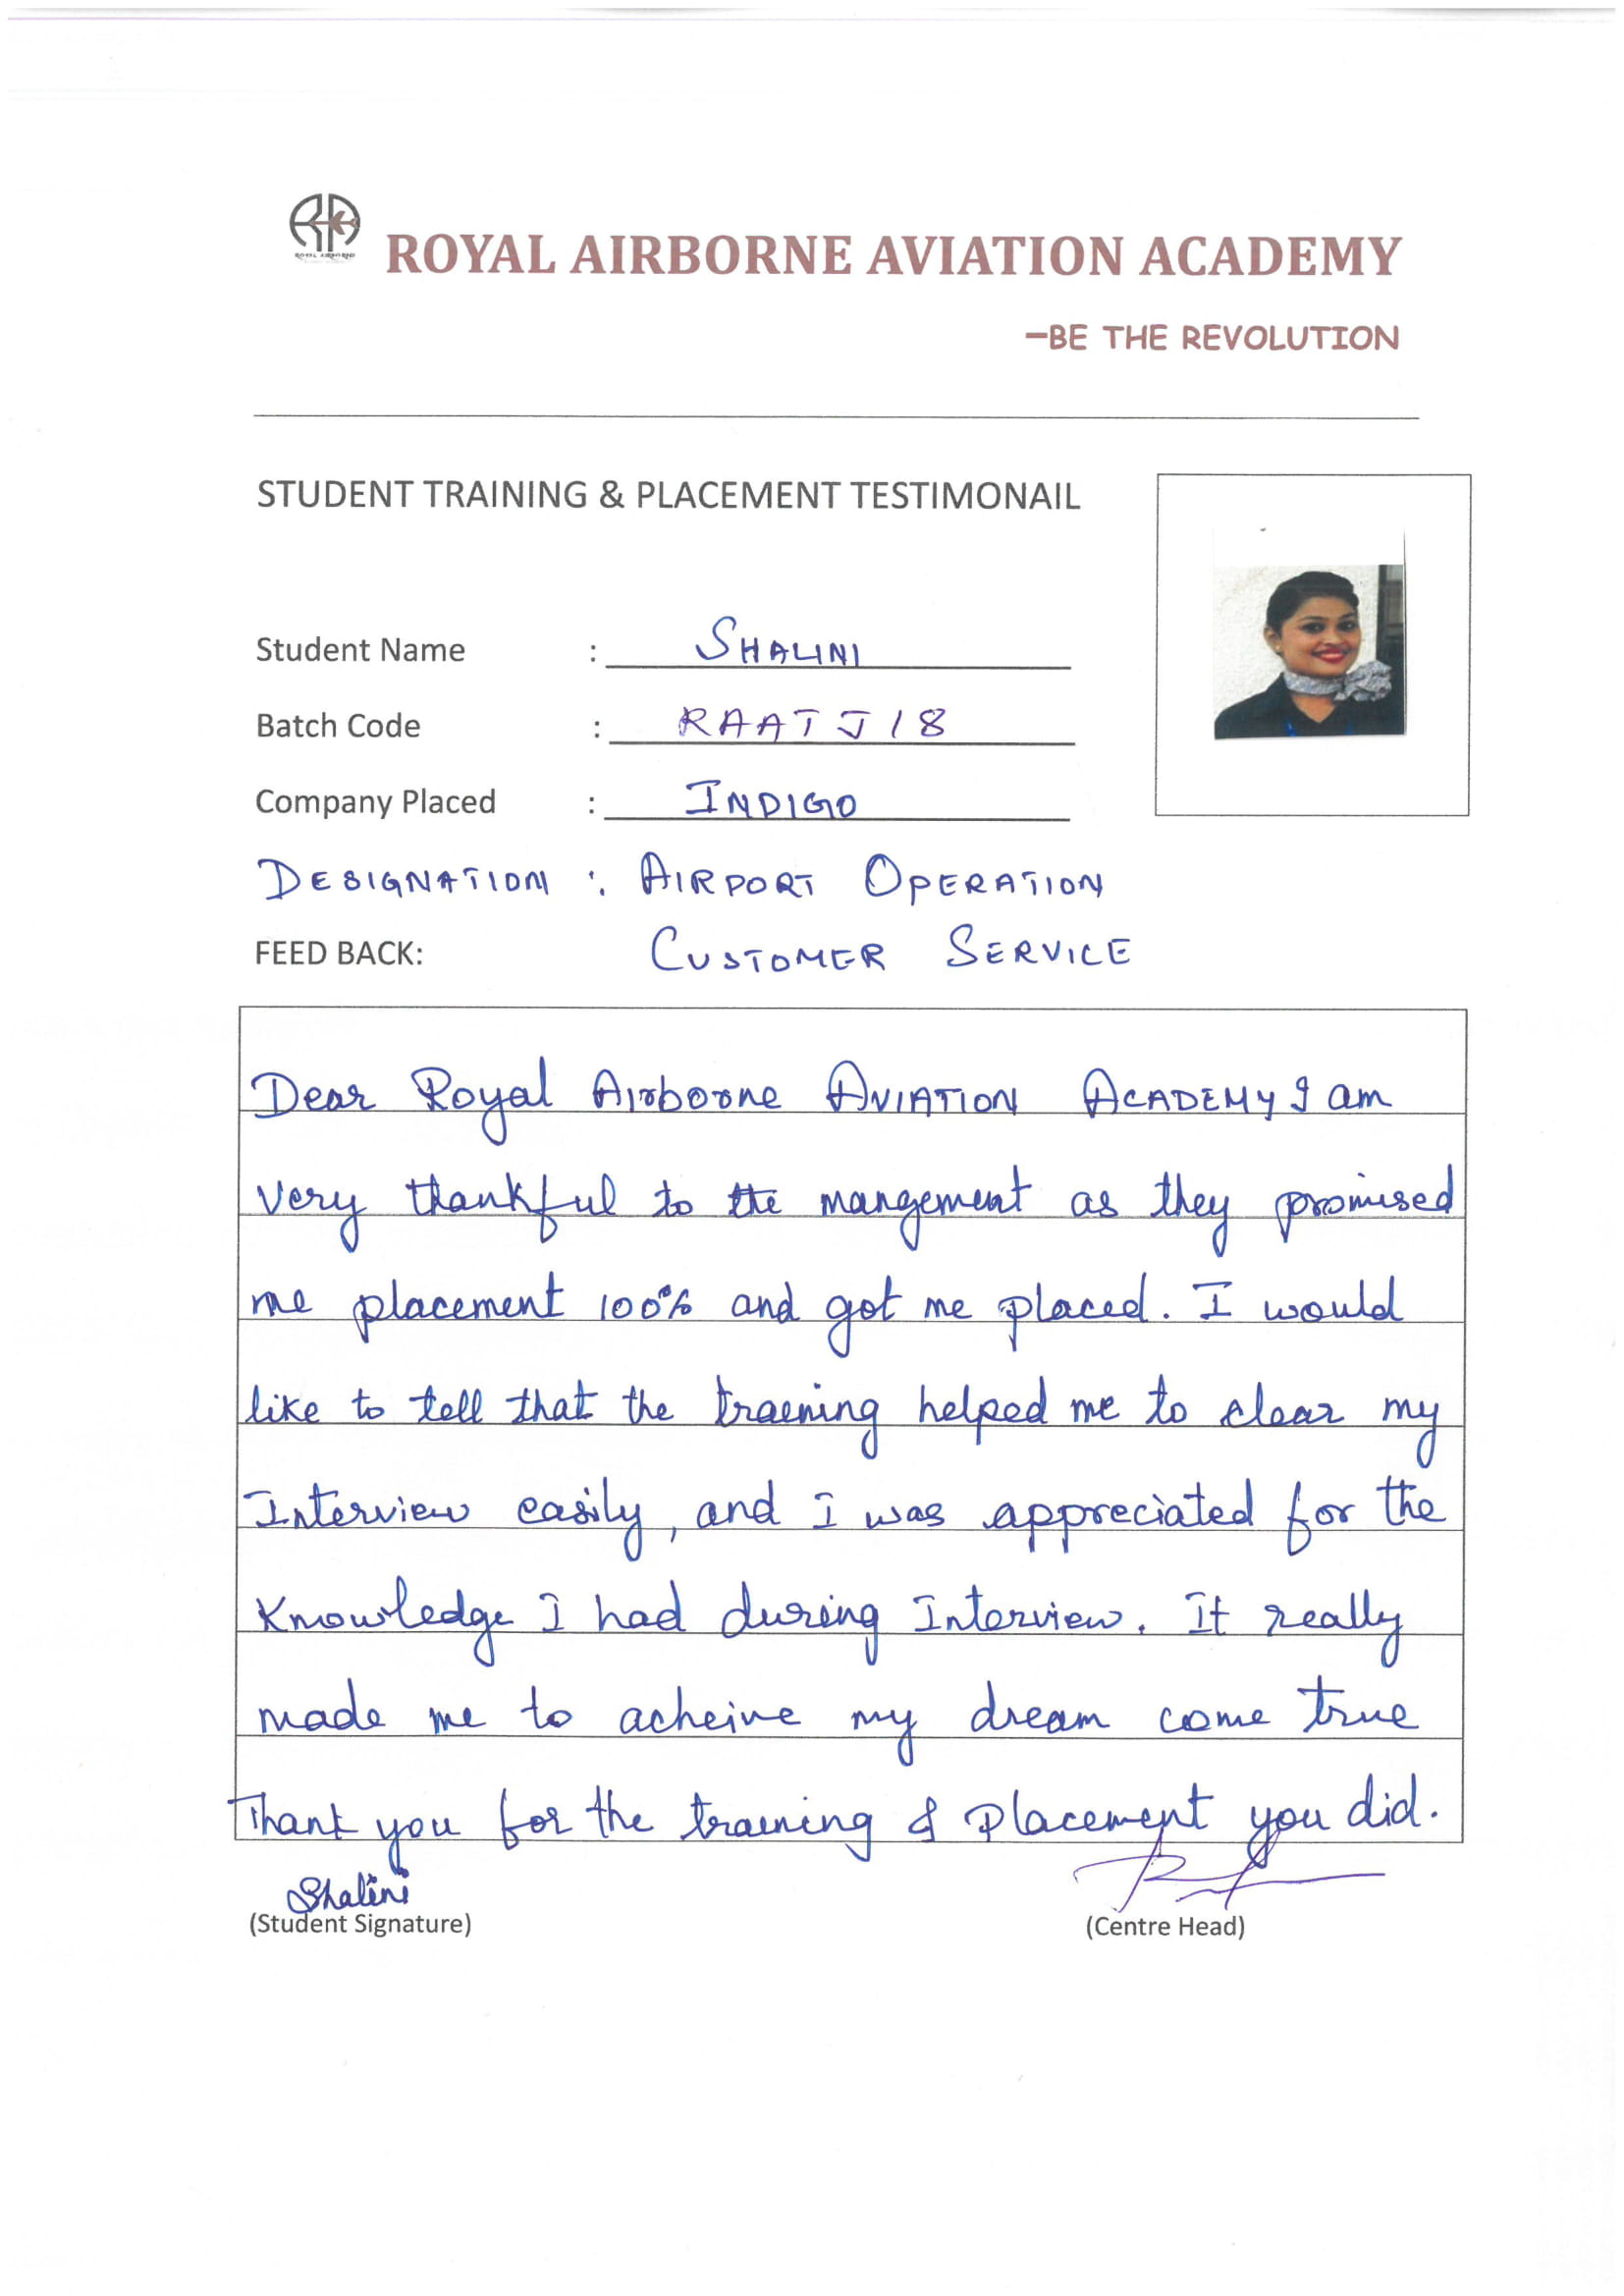 ROYAL AIRBORNE
ROYAL AIRBORNE AVIATION ACADEMY
–BE THE REVOLUTION
STUDENT TRAINING & PLACEMENT TESTIMONAIL
Student Name : SHALINI
Batch Code : RAATJ18
Company Placed : INDIGO
DESIGNATION : AIRPORT OPERATION
FEED BACK: CUSTOMER SERVICE
Dear Royal Airborne AVIATION ACADEMY I am
very thankful to the mangement as they promised
me placement 100% and got me placed. I would
like to tell that the traening helped me to clear my
Interview easily, and I was appreciated for the
Knowledge I had during Interview. It really
made me to acheive my dream come true
Thank you for the traening & Placement you did.
Shalini
(Student Signature) (Centre Head)